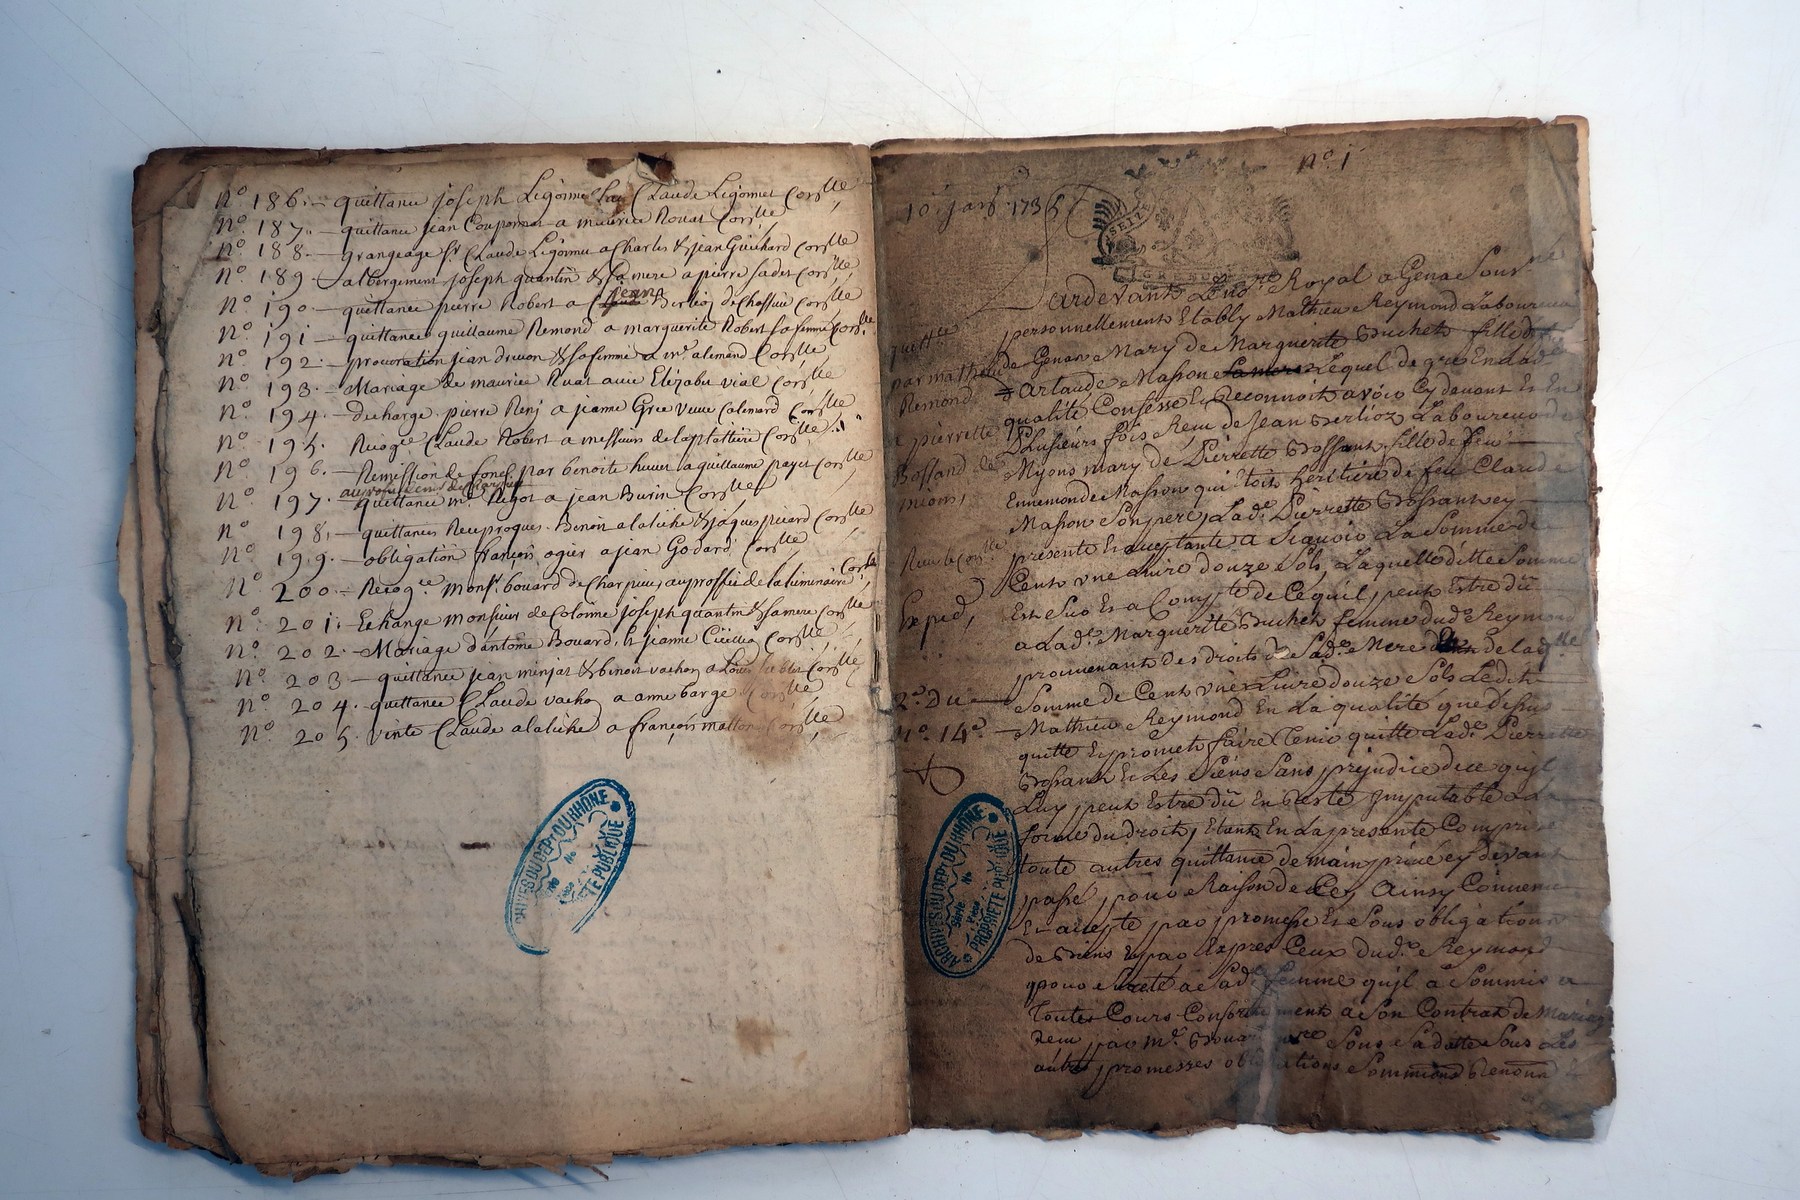 n.º 186. — quittance joseph Ligonnet Claude Ligonnet Corlle
n.º 187. — quittance jean a maurice Ruat Corlle
n.º 188. — grangeage Sr Claude Ligonnet a Charles & jean Guichard Corlle
n.º 189. albergement joseph quantin & sa mere a pierre sadet Corlle
n.º 190. — quittance pierre Robert a jeann Berlioz de Chassieu Corlle
n.º 191 — quittance guillaume Remond a marguerite Robert sa femme Corlle
n.º 192. — procuration jean & sa femme a mr alemand Corlle
n.º 193. — Mariage de maurice Ruat avec Elizabet vial Corlle
n.º 194. — decharge pierre a jeanne Gree veuve Corlle
n.º 195. Recogce Claude Robert a messieurs de la plattiere Corlle
n.º 196. — Remission de fonds par benoite a guillaume payet Corlle
n.º 197. — quittance mr a jean Burin Corlle
nº 198, — quittances Reciproques Benoit alaliche & jaques picard Corlle
n.º 199. — obligation françois ogier a jean Godard Corlle
n.º 200. — Recogce monsr. bouard de Charpieu, au proffit de la luminaire Corlle
n.º 201. — Echange monsieur de Colonne joseph quantin & sa mere Corlle
n.º 202. — Mariage d'antoine Bouard & jeanne Corlle
n.º 203 — quittance jean minjat & benoit vachon a Corlle
n.º 204. quittance Claude vachon a anne barge Corlle
n.º 205. vente Claude alaliche a françois matton Corlle
ARCHIVES DU DEPT DU RHÔNE
PROPRIÉTÉ PUBLIQUE
n.º 1
SEIZ
GRENO
Pardevant Le nore Royal a Genas Sousé
personnellement Etably Mathieu Reymond Laboureur
de Genas Mary de Marguerite Buchet fille de
d'artaude Masson Lequel de gre En lad
qualité Confesse Et Reconnoit avoir Cy devant Et En
Plusieurs fois Reçu de Jean Berlioz Laboureur de
Myons mary de Pierrette Bossant fille de feu
Ennemonde Masson qui Etoit heritiere de feu Claude
Masson Son pere, Lade Pierrette Bossant Cy
presente Et acceptante a Sçavoir La Somme de
Cent une Livre douze Sols, Laquelle ditte Somme
Est Sur Et a Compte de Ce quil peut Estre dü
a Lade Marguerite Buchet femme dud. Reymond
provenant des droits de Sade Mere de laqlle
Somme de Cent une Livre douze Sols Ledit
Mathieu Reymond En La qualité que dessus
quitte Et promet faire Tenir quitte Lade Pierrette
Bossant Et Les Siens Sans prejudice de ce quil
Luy peut Estre dü En Reste Imputable a La
forme du droit, Etant En La presente Comprise
toute autres quittance de main privé cy devant
passé pour Raison de Ce, Ainsy Convenu
Et accepté par promesse Et Sous obligation
de Biens Et par Exprès Ceux dud. Reymond
pour Sureté a Sade femme quil a Sommis a
Toutes Cours Conformement a Son Contrat de Mariag
Reçu par Mr. nore Sous Sa datte Sous Les
autres promesses obligations Sommions Renon
quittce
par mathieu
Remond
a pierrette
Bossand de
mions,
Exped,
2.º Du
n.º 14e
ARCHIVES DU DEPT DU RHÔNE
Série No
PROPRIÉTÉ PUBLIQUE